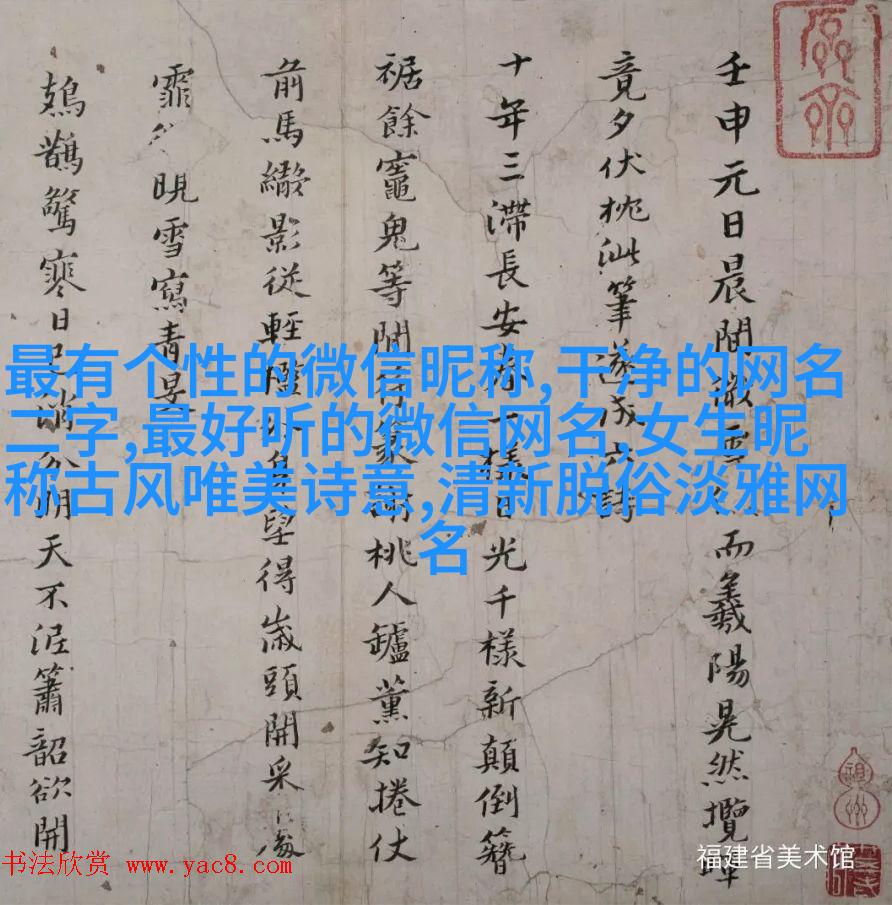 壬申元日晨間微雪而羲陽晃然攬暉
竟夕伏枕泚筆遂成六詩
十年三滯長安春一樣日光千樣新顛倒簪
裾餘竈鬼等閒桃人鑪薰知捲仗
前馬繖影從輕望得歲頭開采
霏晛雪寫青旻
鳷鵲驚寒日天不泥簫韶欲開
最有个性的微信昵称,干净的网名
二字,最好听的微信网名,女生昵
称古风唯美诗意,清新脱俗淡雅网
名
书法欣赏 www.yac8.com
福建省美术馆